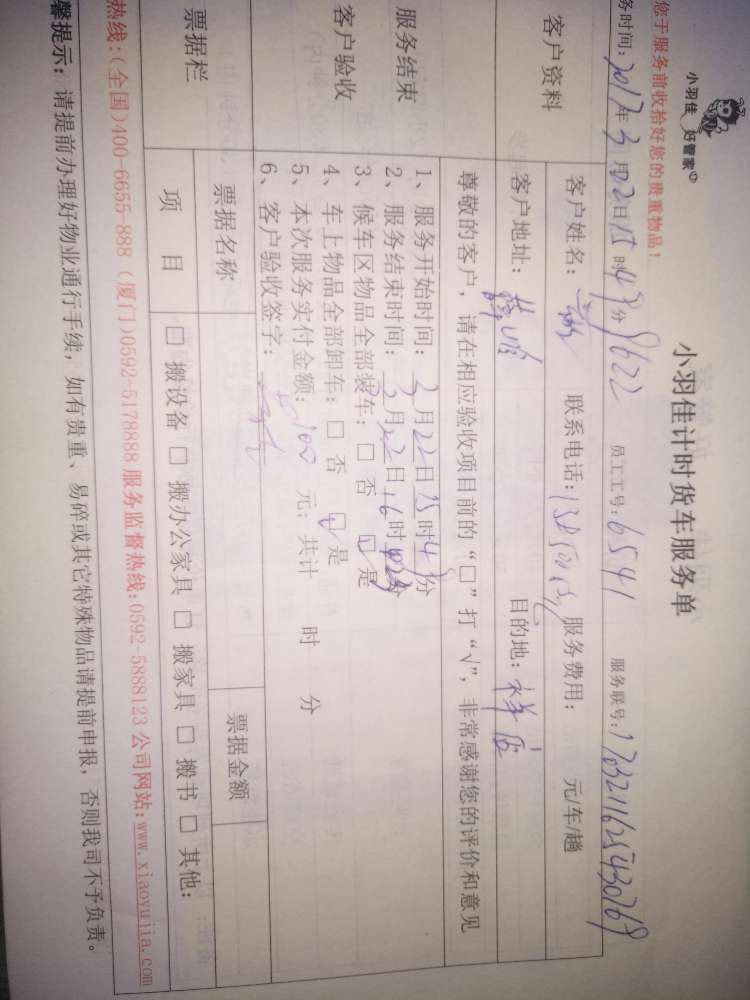 小羽佳 好管家
小羽佳计时货车服务单
您于服务前收拾好您的贵重物品！
务时间：2017年3月22日15时48分 9622 员工工号：6541 服务联号：1703211625430769
客户资料
客户姓名： 联系电话： 服务费用： 元/车/趟
客户地址：薛岭 目的地：祥店
尊敬的客户，请在相应验收项目前的“□”打“√”，非常感谢您的评价和意见
服务结束
客户验收
1、服务开始时间：3月22日15时48分
2、服务结束时间：3月22日16时分
3、候车区物品全部装车：□ 否 ☑ 是
4、车上物品全部卸车：□ 否 ☑ 是
5、本次服务实付金额：100 元；共计 时 分
6、客户验收签字：
票据栏
票据名称 票据金额
项 目 □ 搬设备 □ 搬办公家具 □ 搬家具 □ 搬书 □ 其他：
热线：(全国)400-6655-888 (厦门)0592-5178888 服务监督热线：0592-5888123 公司网站：www.xiaoyujia.com
馨提示：请提前办理好物业通行手续，如有贵重、易碎或其它特殊物品请提前申报，否则我司不予负责。